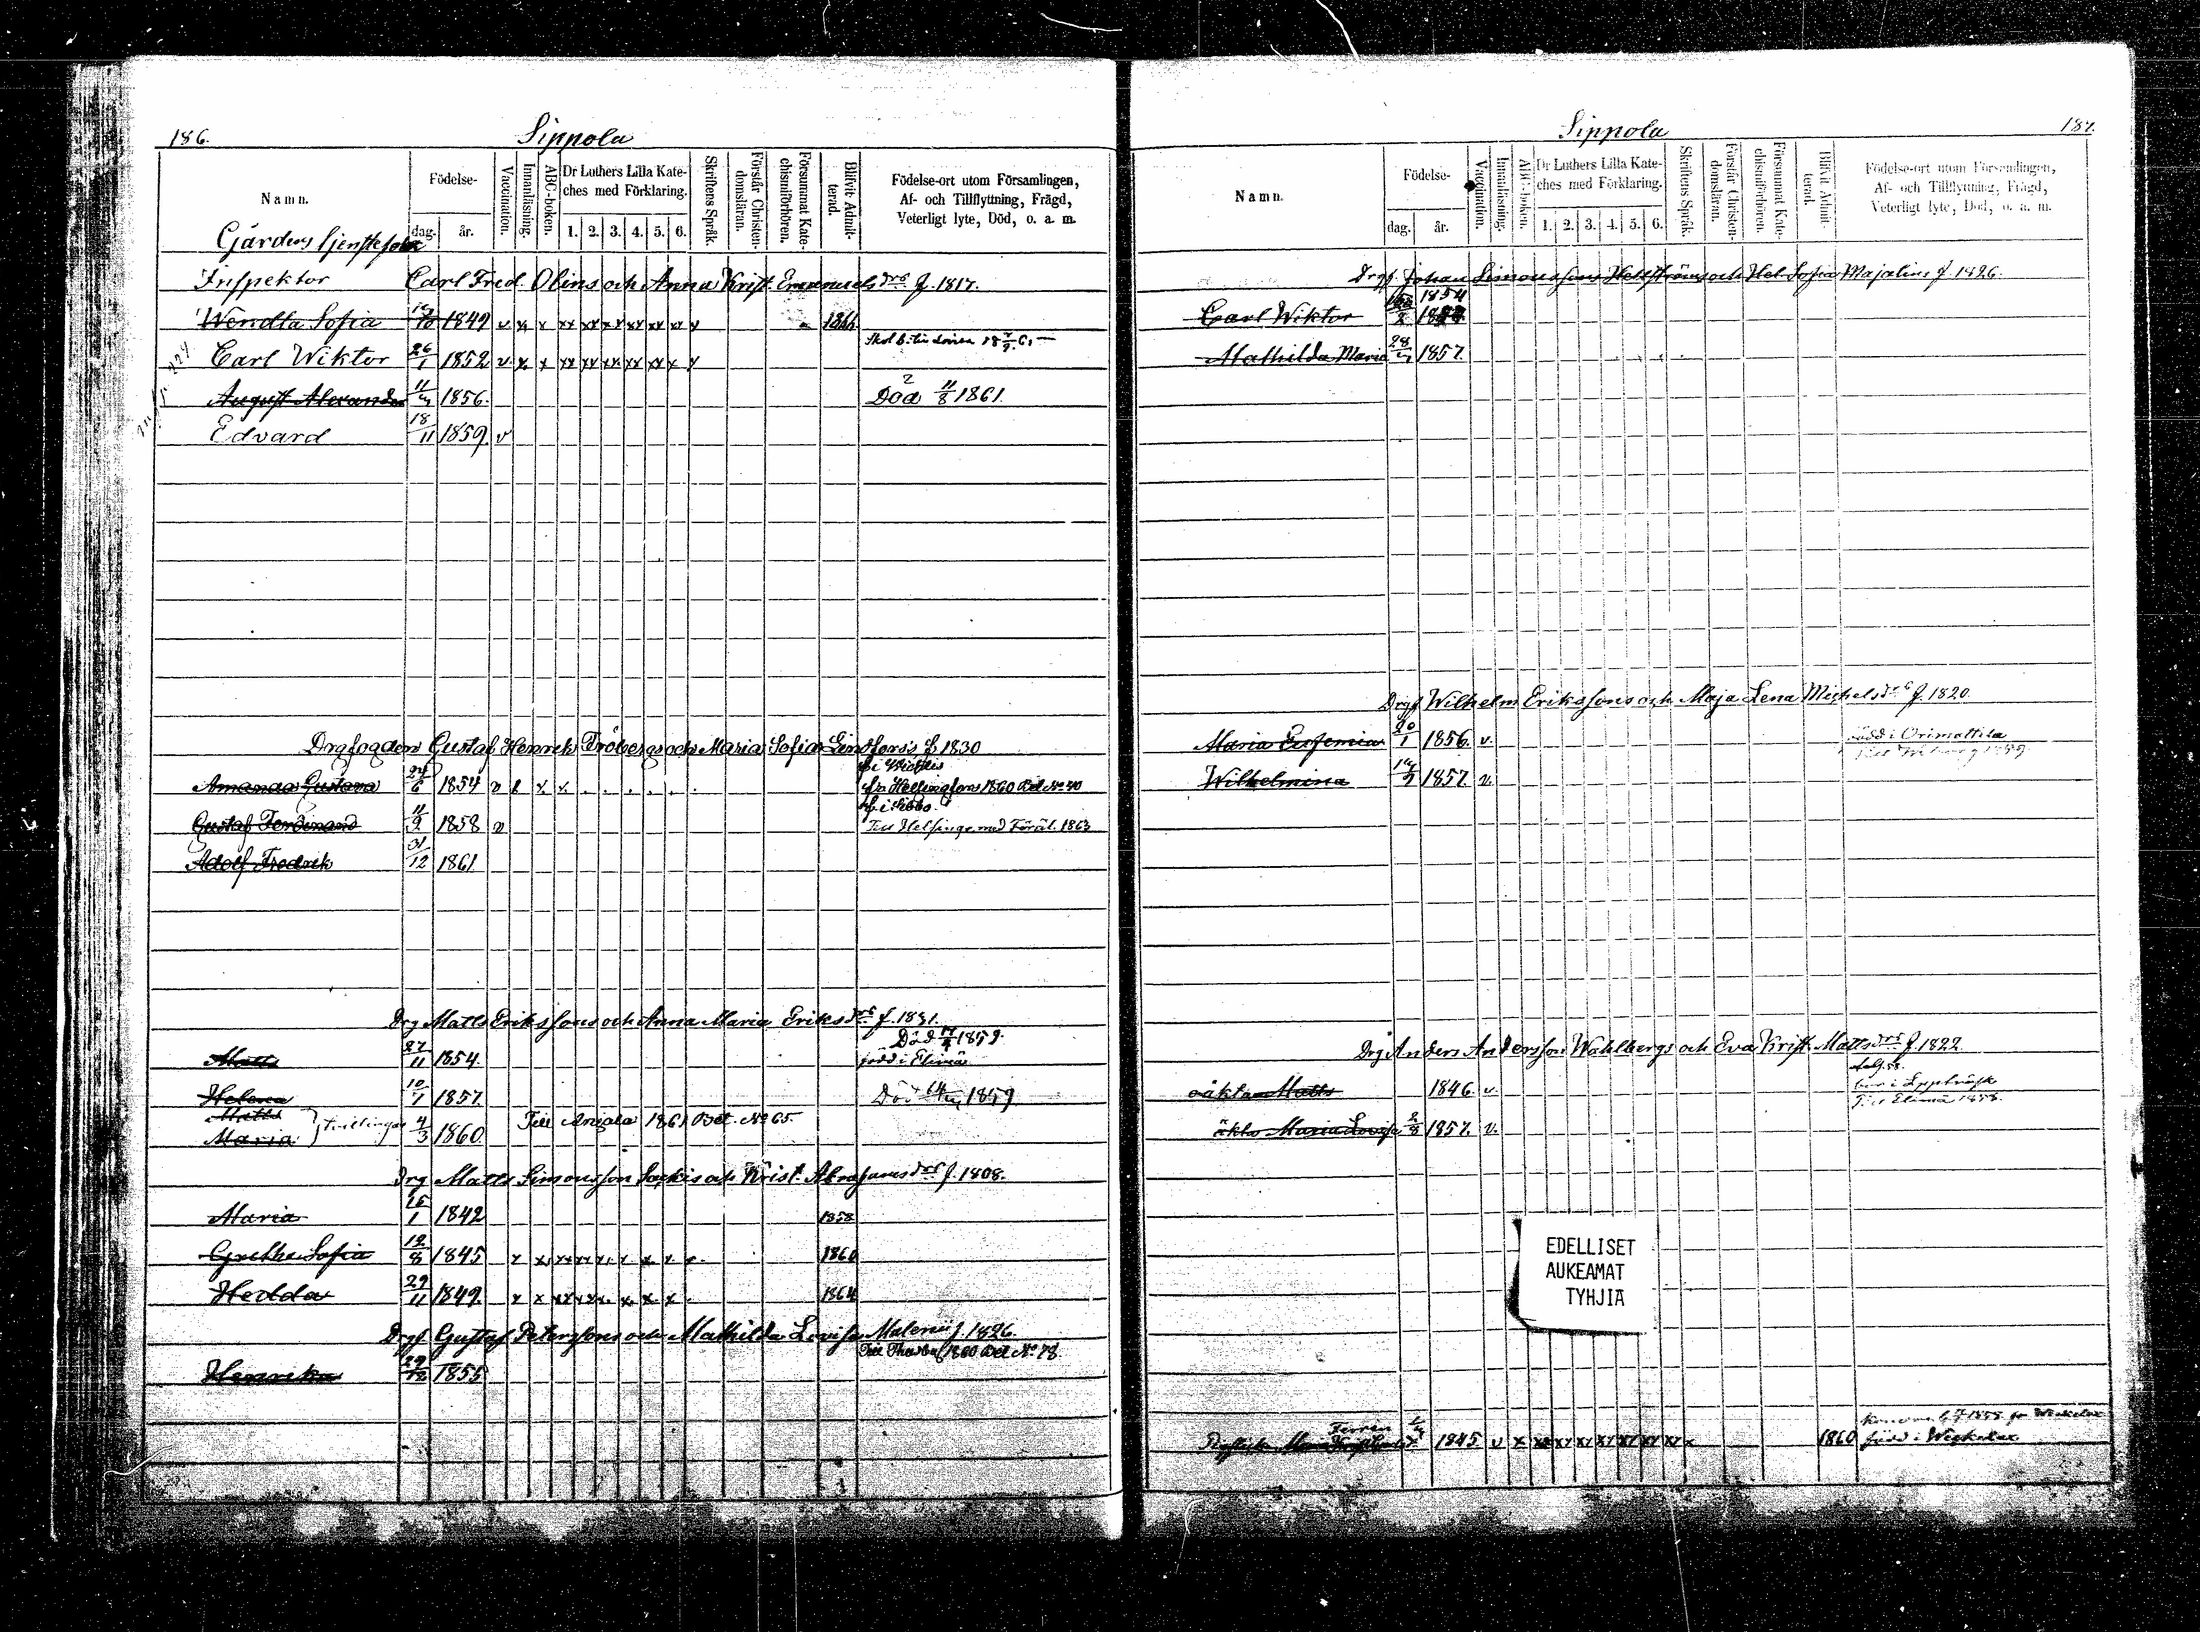 186.
Sippola
Namn.
Födelse-
dag.
år.
Vaccination.
Innanläsning.
ABC-boken.
Dr Luthers Lilla Kate-
ches med Förklaring.
1. 2. 3. 4. 5. 6.
Skriftens Språk.
Förstår Christen-
domsläran.
Försummat Kate-
chismiförhören.
Blifvit Admit-
terad.
Födelse-ort utom Församlingen,
Af- och Tillflyttning, Frägd,
Veterligt lyte, Död, o. a. m.
Gårdens tjenstefolk
Inspektor Carl Fred. Olins och Anna Krist. Emanuelsdrs f. 1817.
Wendla Sofia 1849 v x x xx xx xx xx xx xx v 1866
Carl Wiktor 26/1 1852 v x x xx xx xx xx xx x v
August Alexander 1856. Död 11/8 1861
Edvard 18/11 1859 v
Drgfogden Gustaf Henrik Fröbergs och Maria Sofia Lindfors's f. 1830
Amanda Gustava 24/6 1854 v fr. Helsingfors 1860 Bet No 40
Gustaf Ferdinand 11/9 1858 v Till Helsingf. med Föräl. 1863
Adolf Fredrik 31/12 1861
Drg Matts Erikssons och Anna Maria Eriksdrs f. 1831.
Matts 27/11 1854. Död 1859.
född i Elimä
Helena 10/1 1857. Död 1859
Matts
Maria } tvillingar 4/3 1860 Till Anjala 1861 Bet. No 65.
Drg Matts Simonsson och Krist. Abrahamsdrs f. 1808.
Maria 1842 1858
Gretha Sofia 12/8 1845 1860
Hedda 29/11 1849. 1864
Drgf. Gustaf Peterssons och Mathilda Lovisa Malenii f. 1826
Henrika 29/12 1855 1860 Bet No 78
Sippola
187.
Namn.
Födelse-
dag.
år.
Vaccination.
Innanläsning.
ABC-boken.
Dr Luthers Lilla Kate-
ches med Förklaring.
1. 2. 3. 4. 5. 6.
Skriftens Språk.
Förstår Christen-
domsläran.
Försummat Kate-
chismiförhören.
Blifvit Admit-
terad.
Födelse-ort utom Församlingen,
Af- och Tillflyttning, Frägd,
Veterligt lyte, Död, o. a. m.
Drgf. Johan Simonssons Hellströms och Hel. Sofia Majalins f. 1826.
1854
Carl Wiktor
Mathilda Maria 1857.
Drgf Wilhelm Erikssons och Maja Lena Michelsdrs f. 1820.
Maria Eufemia 20/1 1856. v. född i Orimattila
Till Wiborg 1859
Wilhelmina 1857. v.
Drg Anders Andersson Wahlbergs och Eva Krist. Mattsdrs f. 1822.
oäkta Matts 1846. v.
Till Elimä 1858.
äkta Maria Lovisa 2/8 1857. v.
EDELLISET
AUKEAMAT
TYHJIA
1845 v x 1860 född i Weckelax